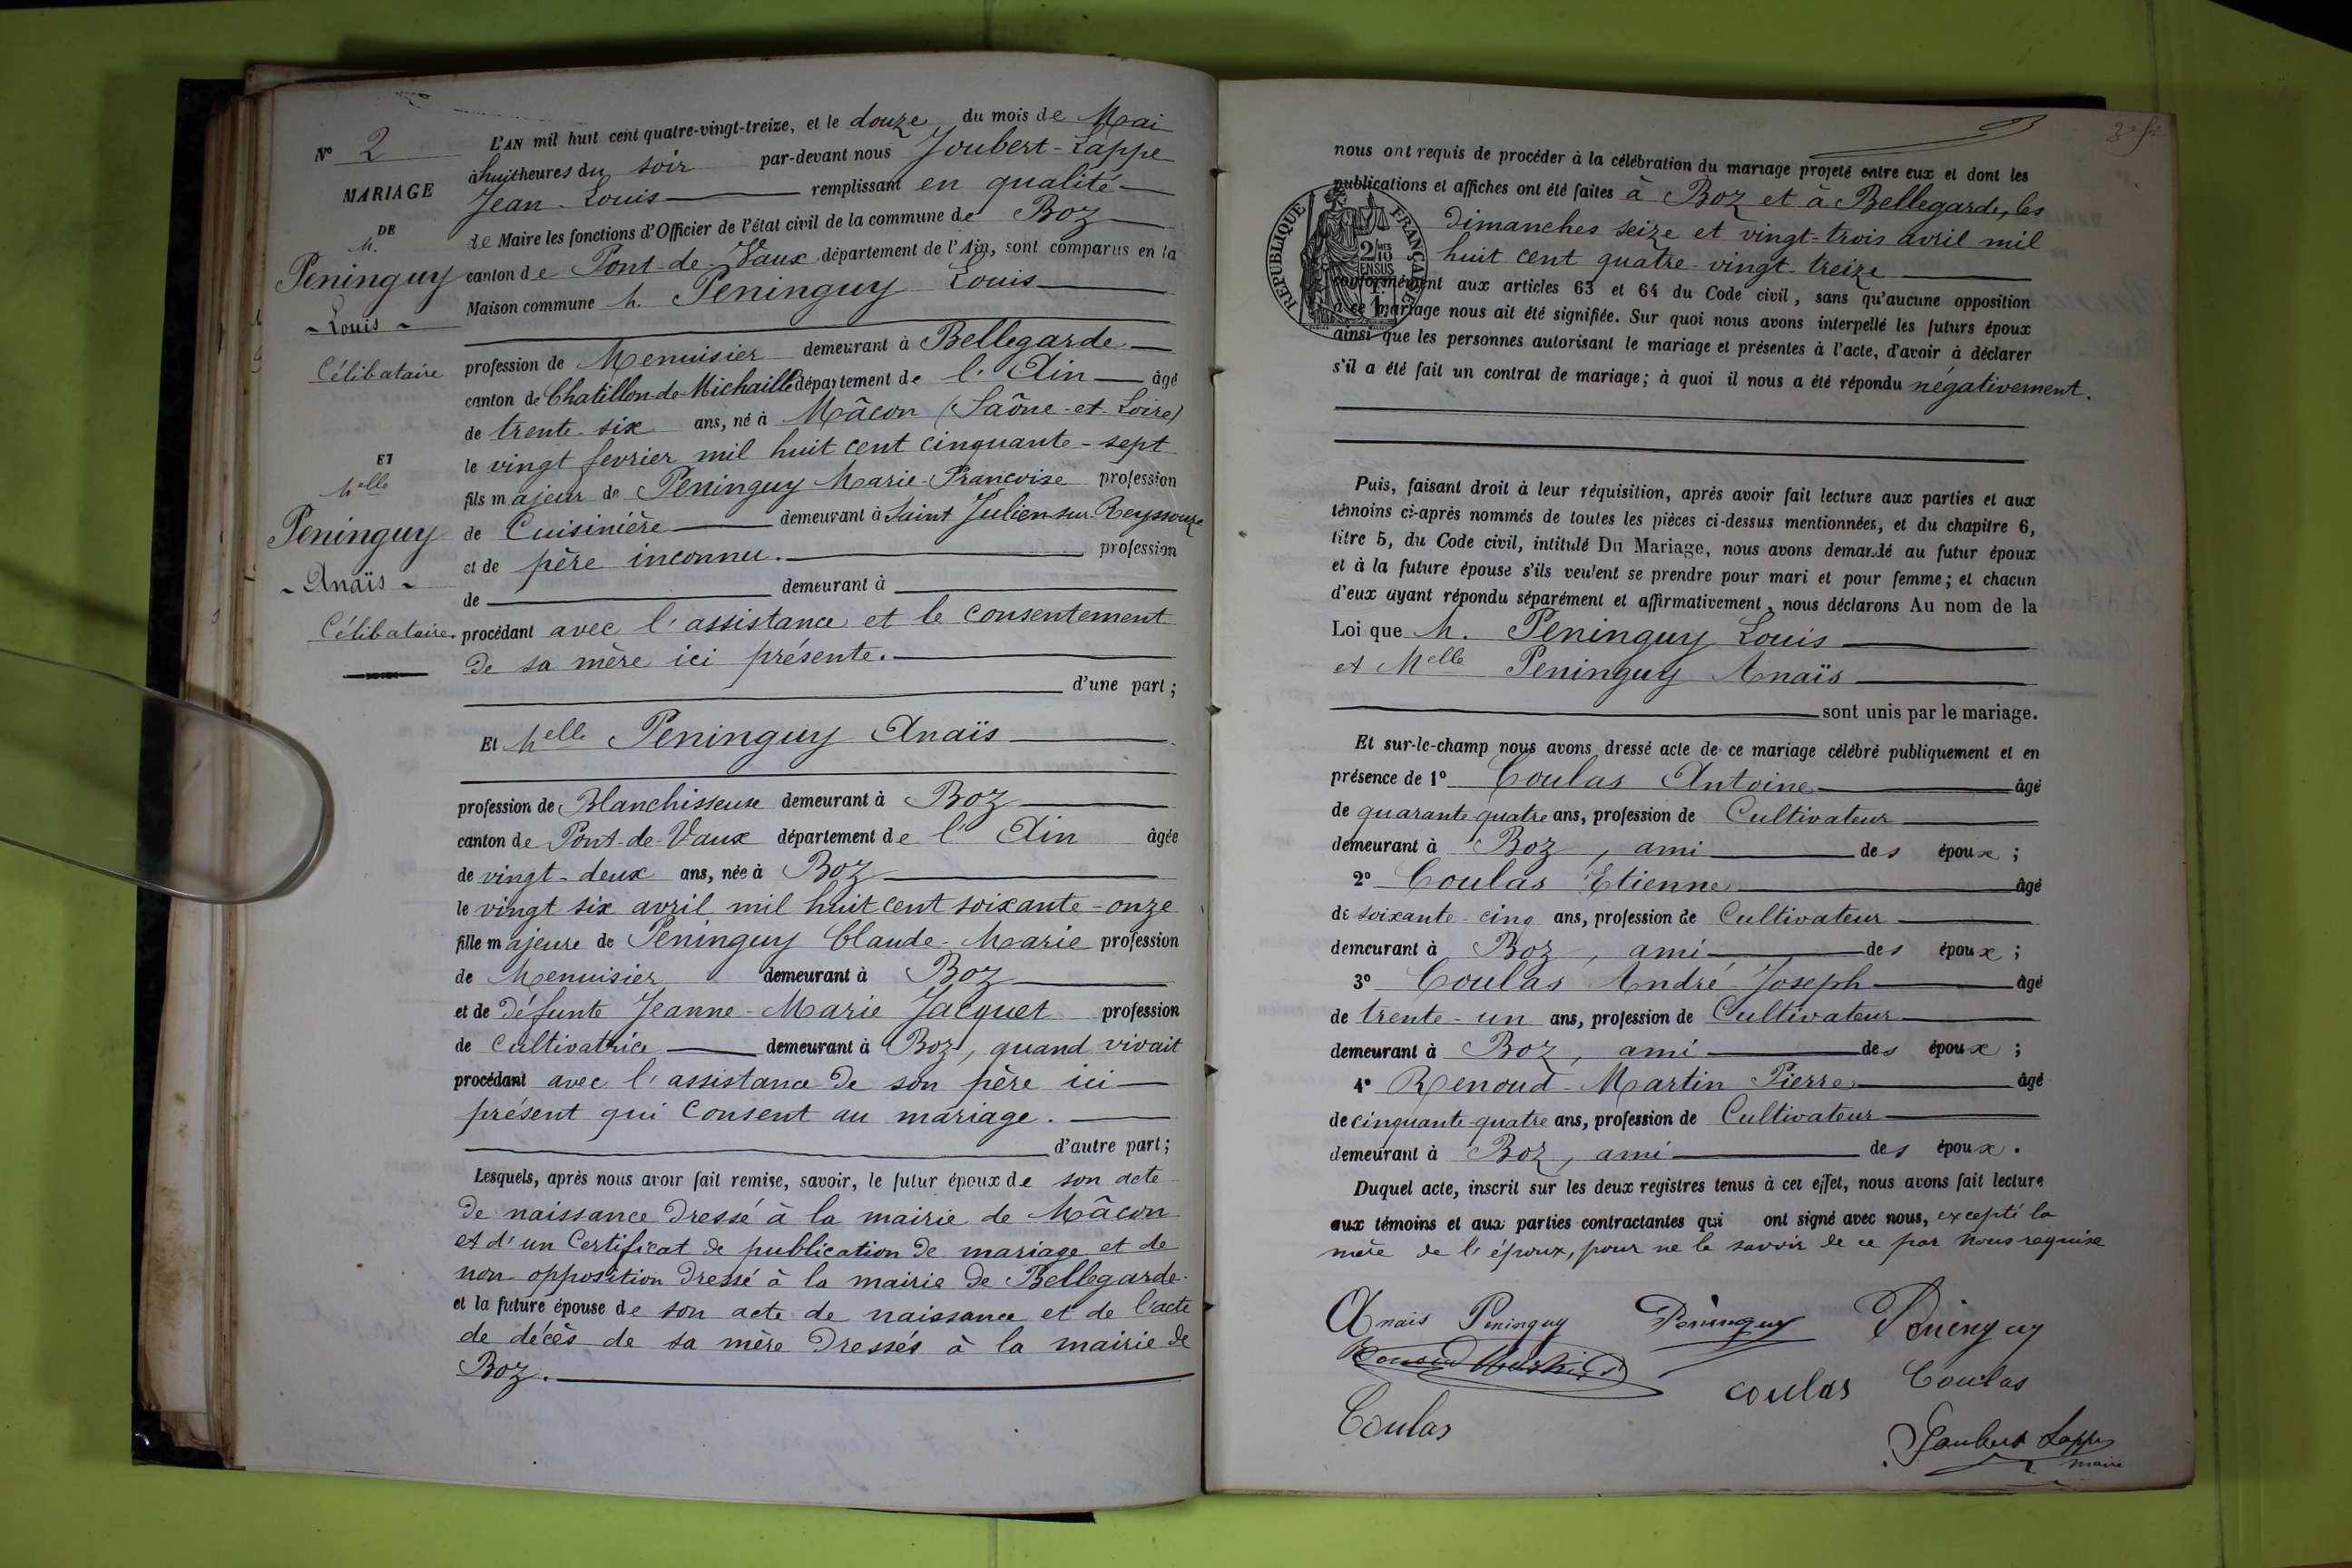 N° 2
MARIAGE
DE
M.
Peninguy
- Louis -
Célibataire
ET
Melle
Peninguy
- Anaïs -
Célibataire.
L'AN mil huit cent quatre-vingt-treize, et le douze du mois de Mai
à huit heures du soir par-devant nous Joubert-Lappe
Jean-Louis remplissant en qualité
de Maire les fonctions d'Officier de l'état civil de la commune de Boz
canton de Pont-de-Vaux département de l'Ain, sont comparus en la
Maison commune M. Peninguy Louis
profession de Menuisier demeurant à Bellegarde
canton de Chatillon-de-Michaille département de l'Ain âgé
de trente-six ans, né à Mâcon (Saône-et-Loire)
le vingt fevrier mil huit cent cinquante-sept
fils majeur de Peninguy Marie-Francoise profession
de Cuisinière demeurant à Saint Julien sur Reyssouze
et de père inconnu. profession
de demeurant à
procédant avec l'assistance et le consentement
de sa mère ici présente.
d'une part;
Et Melle Peninguy Anaïs
profession de Blanchisseuse demeurant à Boz
canton de Pont-de-Vaux département de l'Ain âgée
de vingt-deux ans, née à Boz
le vingt six avril mil huit cent soixante-onze
fille majeure de Peninguy Claude-Marie profession
de Menuisier demeurant à Boz
et de défunte Jeanne-Marie Jacquet profession
de Cultivatrice demeurant à Boz, quand vivait
procédant avec l'assistance de son père ici
présent qui consent au mariage.
d'autre part;
Lesquels, après nous avoir fait remise, savoir, le futur époux de son acte
de naissance dressé à la mairie de Mâcon
et d'un Certificat de publication de mariage et de
non-opposition dressé à la mairie de Bellegarde.
et la future épouse de son acte de naissance et de l'acte
de décès de sa mère dressés à la mairie de
Boz.
nous ont requis de procéder à la célébration du mariage projeté entre eux et dont les
publications et affiches ont été faites à Boz et à Bellegarde, les
dimanches seize et vingt-trois avril mil
huit cent quatre-vingt-treize
RÉPUBLIQUE FRANÇAISE
conformément aux articles 63 et 64 du Code civil, sans qu'aucune opposition
à ce mariage nous ait été signifiée. Sur quoi nous avons interpellé les futurs époux
ainsi que les personnes autorisant le mariage et présentes à l'acte, d'avoir à déclarer
s'il a été fait un contrat de mariage; à quoi il nous a été répondu négativement.
Puis, faisant droit à leur réquisition, après avoir fait lecture aux parties et aux
témoins ci-après nommés de toutes les pièces ci-dessus mentionnées, et du chapitre 6,
titre 5, du Code civil, intitulé Du Mariage, nous avons demandé au futur époux
et à la future épouse s'ils veulent se prendre pour mari et pour femme; et chacun
d'eux ayant répondu séparément et affirmativement, nous déclarons Au nom de la
Loi que M. Peninguy Louis
et Melle Peninguy Anaïs
sont unis par le mariage.
Et sur-le-champ nous avons dressé acte de ce mariage célébré publiquement et en
présence de 1° Coulas Antoine âgé
de quarante quatre ans, profession de Cultivateur
demeurant à Boz, ami des époux;
2° Coulas Etienne âgé
de soixante-cinq ans, profession de Cultivateur
demeurant à Boz, ami des époux;
3° Coulas André-Joseph âgé
de trente-un ans, profession de Cultivateur
demeurant à Boz, ami des époux;
4° Renoud-Martin Pierre âgé
de cinquante-quatre ans, profession de Cultivateur
demeurant à Boz, ami des époux.
Duquel acte, inscrit sur les deux registres tenus à cet effet, nous avons fait lecture
aux témoins et aux parties contractantes qui ont signé avec nous, excepté la
mère de l'époux, pour ne le savoir de ce par nous requise
Anais Peninguy Péninguy Péninguy
Renoud Martin
Coulas coulas Coulas
Joubert Lappe
maire